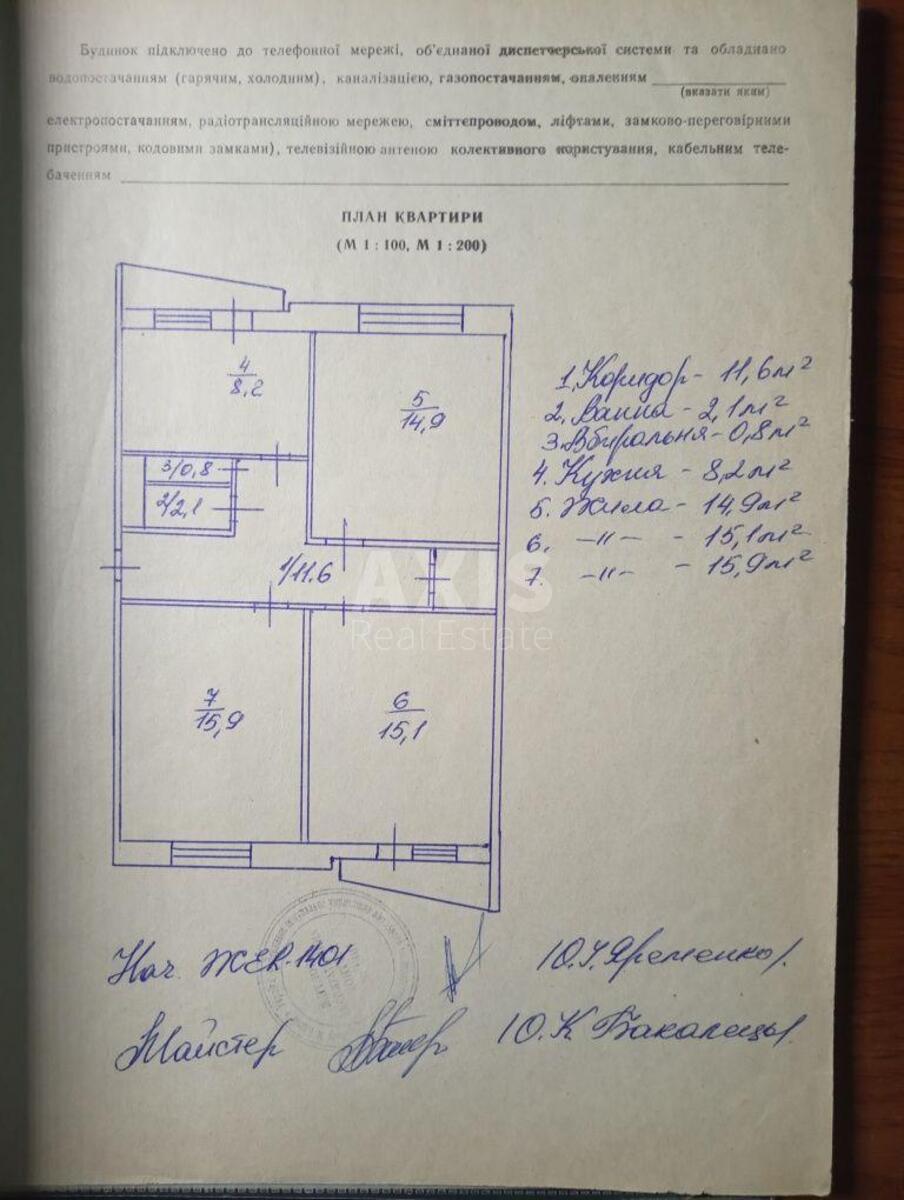 Будинок підключено до телефонної мережі, об'єднаної диспетчерської системи та обладнано
водопостачанням (гарячим, холодним), каналізацією, газопостачанням, опаленням
(вказати яким)
електропостачанням, радіотрансляційною мережею, сміттєпроводом, ліфтами, замково-переговірними
пристроями, кодовими замками), телевізійною антеною колективного користування, кабельним теле-
баченням
ПЛАН КВАРТИРИ
(М 1 : 100, М 1 : 200)
4/8,2
5/14,9
3/0,8
2/2,1
1/11.6
7/15,9
6/15,1
1. Коридор - 11,6м²
2. Ванна - 2,1м²
3. Вбиральня - 0,8м²
4. Кухня - 8,2м²
5. Жила - 14,9м²
6. -"- - 15,1м²
7. -"- - 15,9м²
AXIS
Real Estate
Нач. ЖЕК 1401
Майстер